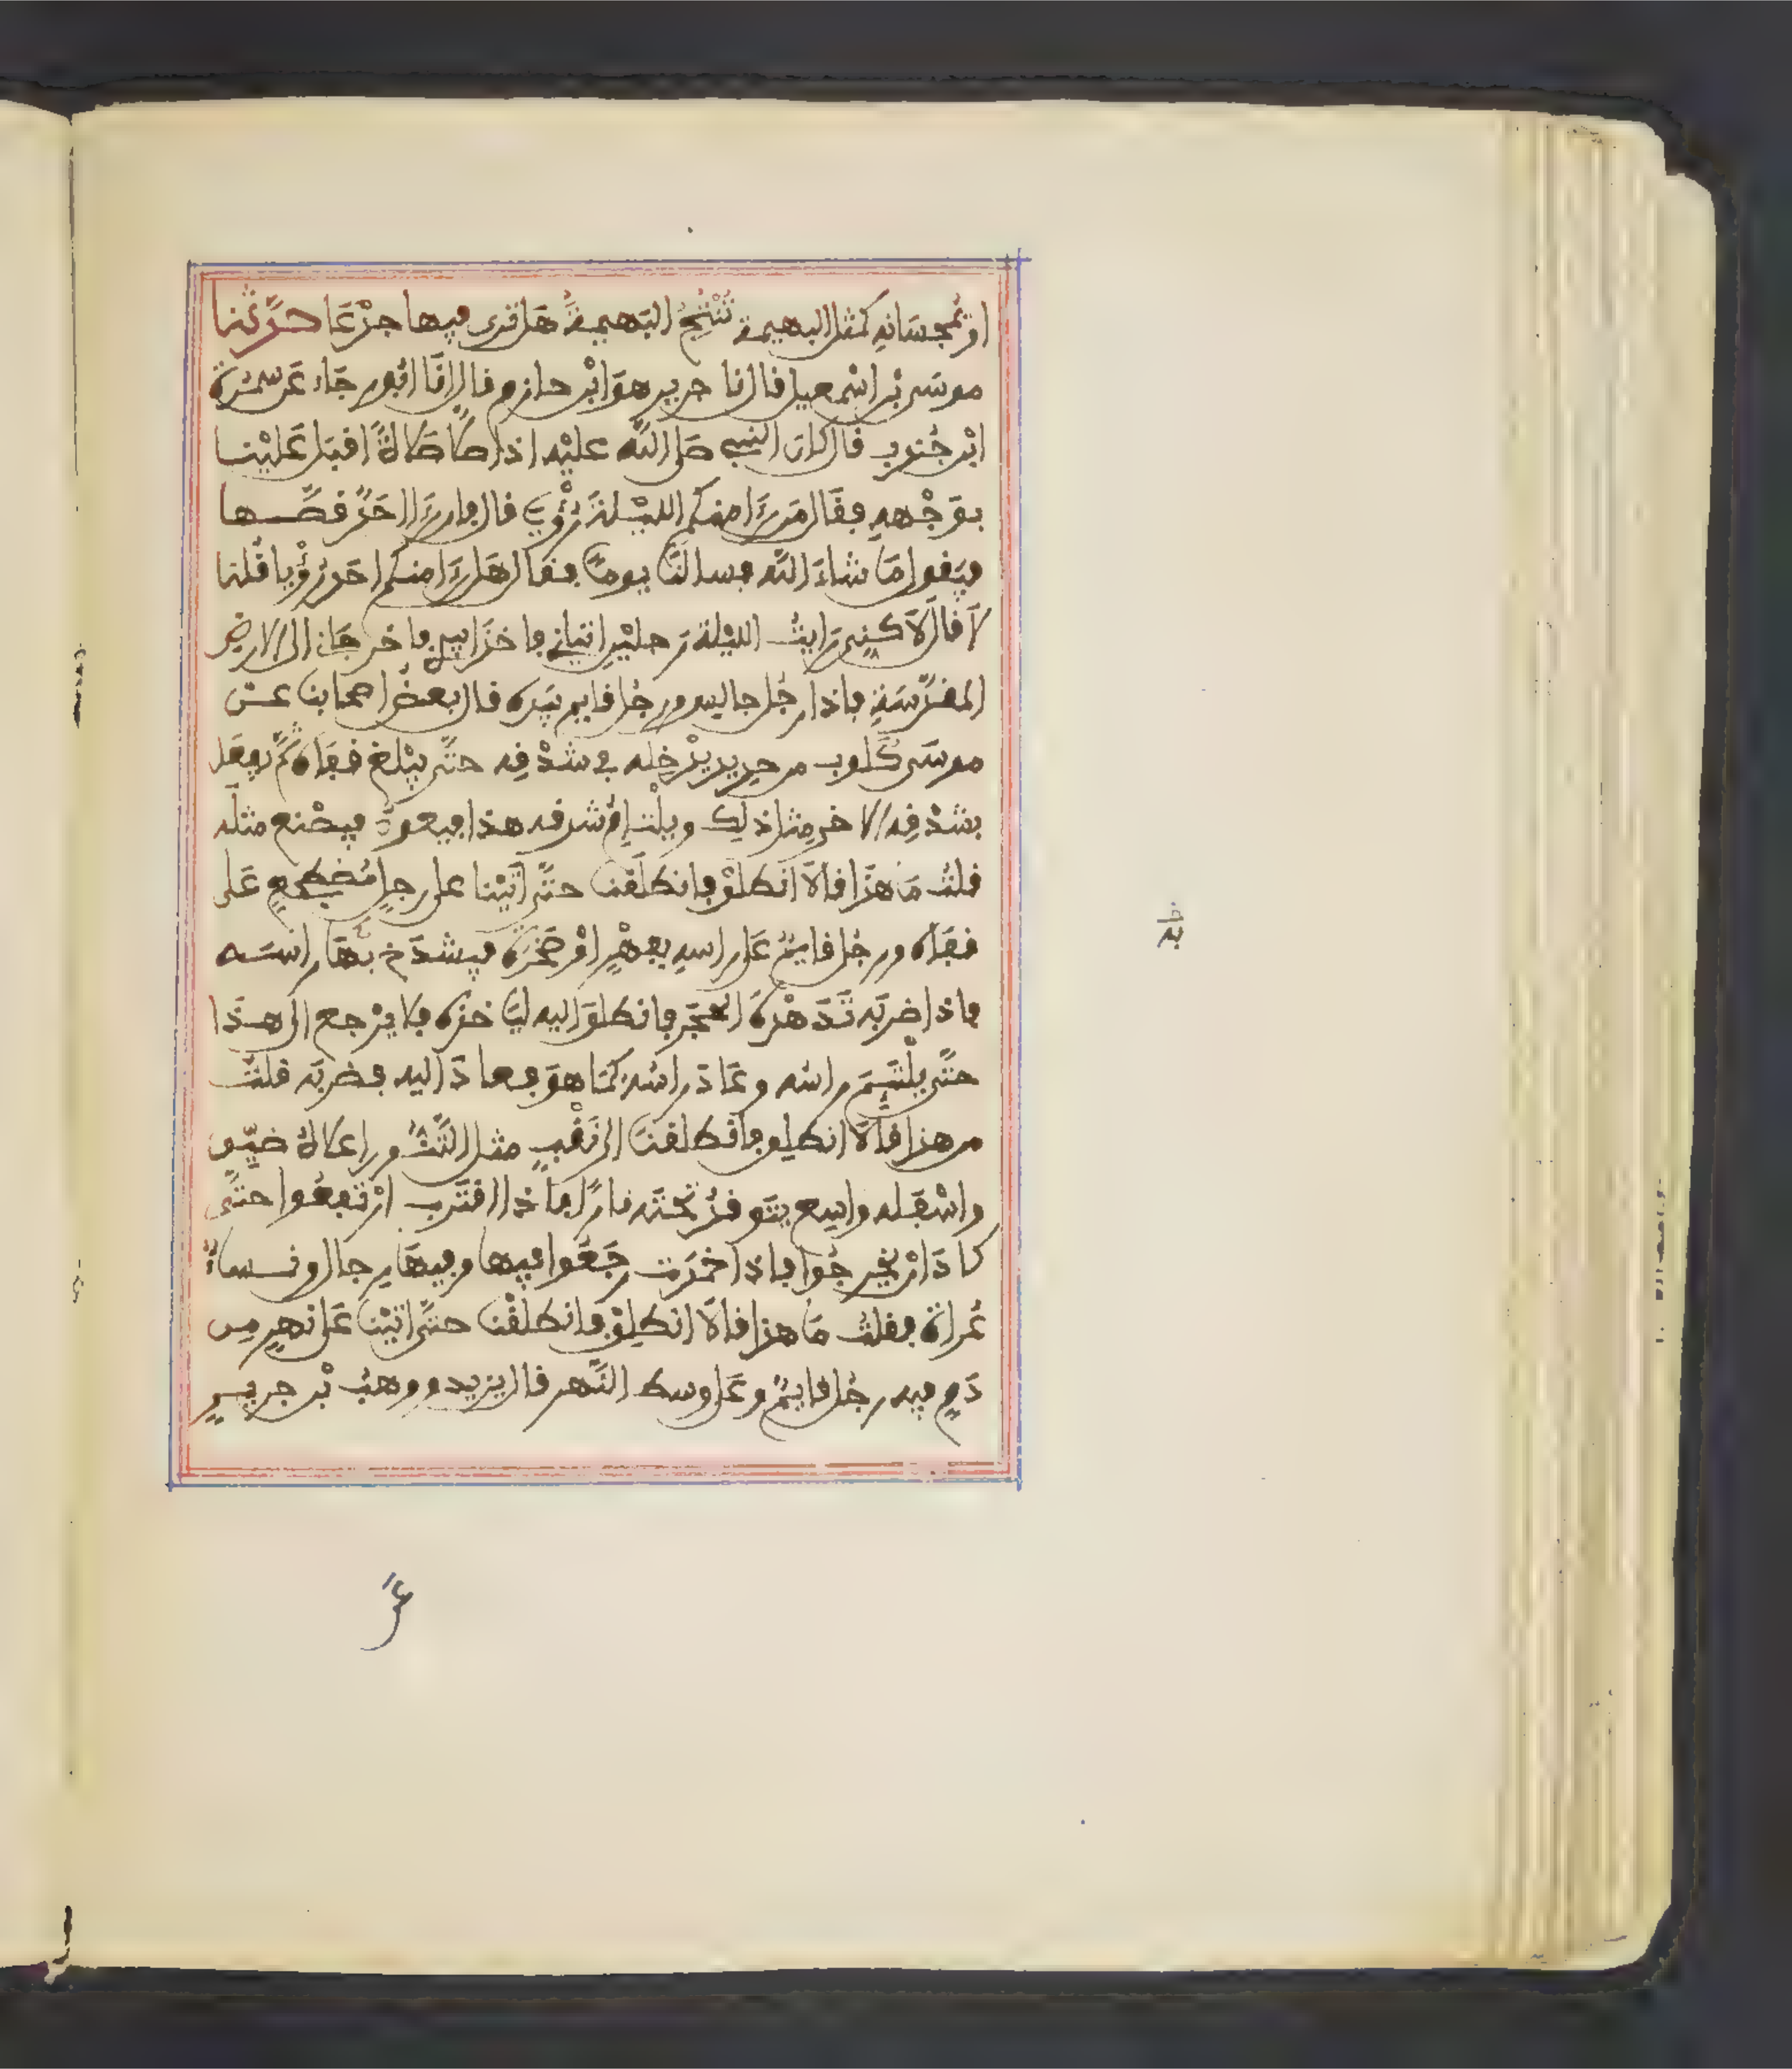 او يُمجسَانِه كمثل البهيمة تُنْتَجُ البَهيمةُ هَل ترى فيها جدْعَا حدَّثنا
موسَى بْن اسْمعيل قال نا جرير هوَ ابْن حازم قال نَا ابُو رجَاء عَن سمُرة
ابْن جُندب قال كان النبي صَلى اللّه عليْه اذا صلى صَلاةً اقبَل عَليْنا
بوَجْهه فقَال مَن رءَا منكم الليْلة رُؤْيَا قال فان رءَا احَدٌ قصَّها
فيَقول مَا شاءَ اللّه فسالنَا يومًا فقال هَل رءَا منكم احَد رؤْيا قُلنا
لاَ قال لاَكنِى رَايتُ الليْلة رَجليْن اتيانِى فاخذَا بيدى فاخرجَانى الى الارض
المقدَّسَةِ فاذا رجُل جالس ورجُل قايم بيَده قال بعضُ اصحابنا عن
موسَى كَلوب من حديد يدْخِله في شدْقِه حتَّى يبْلغ قفاه ثمَّ يفعَل
بشدْقِه الاخر مثل ذلك ويلْتئِمُ شدقه هذا فيعودُ فيصْنع مثلَه
قلتُ مَا هذَا قالاَ انطلقْ فانطلَقنا حتَّى اتيْنا على رجلٍ مُضطجعٍ عَلى
قفاه ورجُل قايمٌ عَلى راسهِ بفهْرٍ اوْ صَخرَة فيشدَخ بهَا راسَه
فاذا ضربَه تَدَهْدَهَ الحجَر فانطلقَ اليه ليَاخذه فلا يرْجع الى هذا
حتَّى يلْتئِمَ راسُه وعَادَ راسُه كمَا هوَ فعادَ اليه فضربَه قلتُ
من هذا قالاَ انطلق فانطلقنَا الى نَقْبٍ مثل التَّنُّور اعلاهُ ضيِّق
واسْفَله واسِع يتَوقدُ تحْتَه نارًا فاذا اقتَرب ارْتفعُوا حتَّى
كادَ انْ يخرجُوا فاذا خمَدَت رجَعُوا فيها وفيهَا رجال ونساءٌ
عُراة فقلتُ مَا هذا قالاَ انطلِقْ فانطلقْنا حتَّى اتيْنا عَلى نهَرٍ مِن
دَمٍ فيه رجُل قايمٌ وعَلى وسط النَّهر قال يزيد ووهبُ بْن جريرٍ